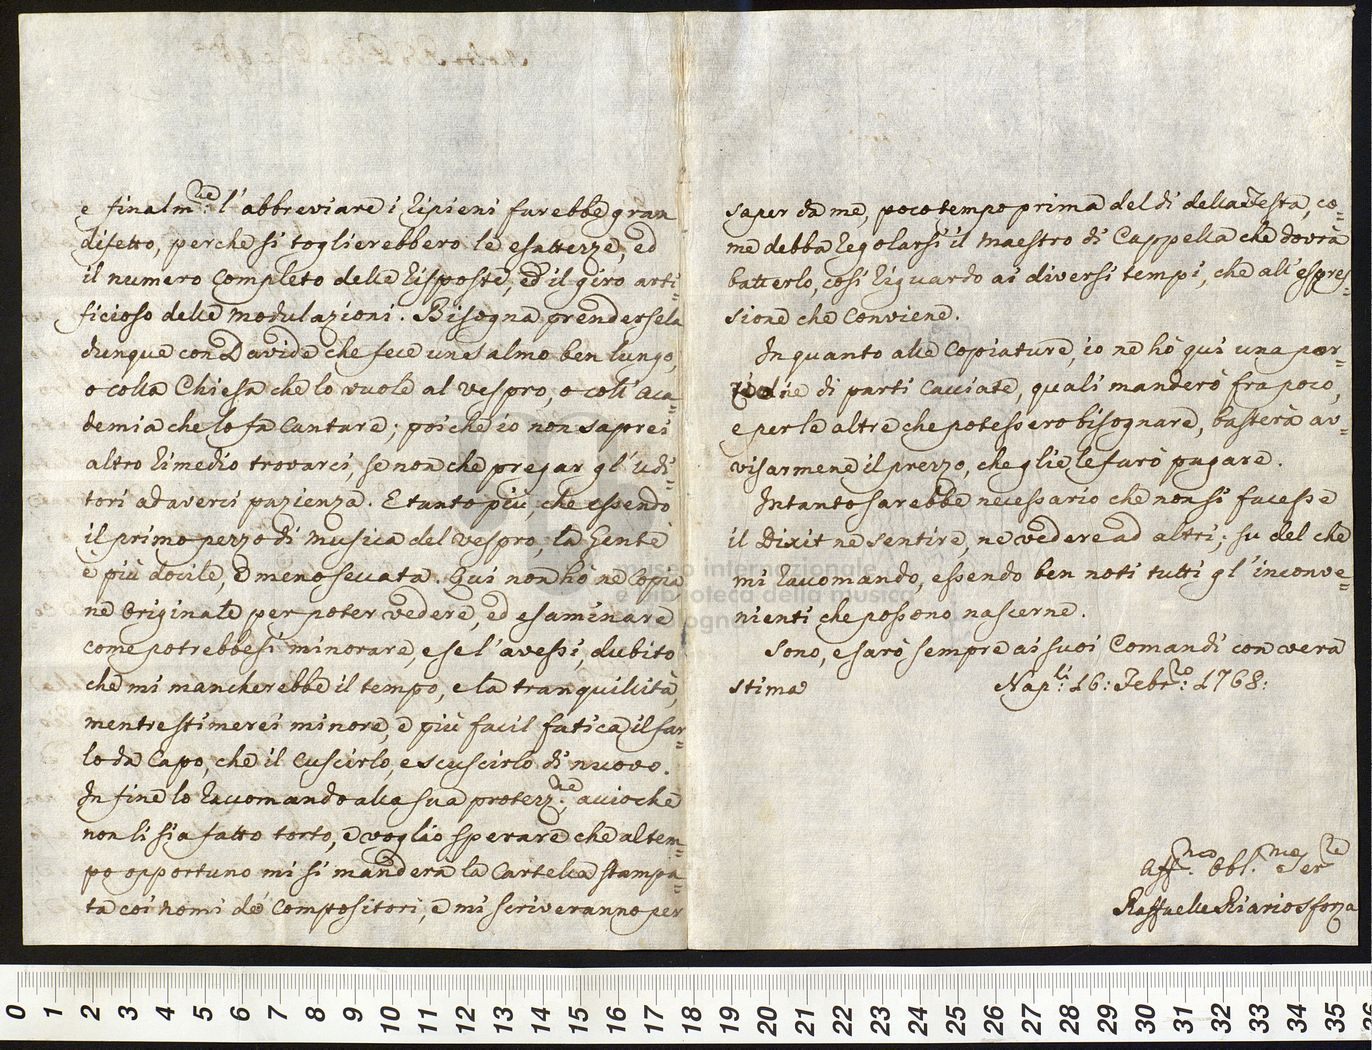 e finalm.te l'abbreviare i ripieni farebbe gran
difetto, perche si toglierebbero le esattezze, ed
il numero completo delle risposte, ed il giro arti=
ficioso delle modulazioni. Bisogna prendersela
dunque con Davide che fece un Salmo ben lungo,
o colla Chiesa che lo vuole al Vespro, o coll'Aca=
demia che lo fà Cantare; poiche io non saprei
altro rimedio trovarci, se non che pregar gl'udi=
tori ad averci pazienza. E tanto più, che essendo
il primo pezzo di Musica del Vespro, la Gente
è più docile, e meno seccata. Qui non hò ne Copia
ne Originale per poter vedere, ed esaminare
come potrebbesi minorare, e se l'avessi, dubito
che mi mancherebbe il tempo, e la tranquillità,
mentre stimerei minore, e più facil fatica il far=
lo da Capo, che il Cuscirlo, e scuscirlo di nuovo.
In fine lo raccomando alla sua protezz.ne, acciochè
non li sia fatto torto, e voglio sperare che al tem=
po opportuno mi si manderà la Cartella Stampa=
ta coi nomi de' Compositori, e mi scriveranno per
saper da me, poco tempo prima del dì della Festa, co=
me debba regolarsi il Maestro di Cappella che dovrà
batterlo, così riguardo ai diversi tempi, che all'espres=
sione che Conviene.
In quanto alle Copiature, io ne hò qui una por=
zione di parti Cacciate, quali manderò fra poco,
e per le altre che potessero bisognare, basterà av=
visarmene il prezzo, che glie le farò pagare.
Intanto sarebbe necessario che non si facesse
il Dixit ne sentire, ne vedere ad altri; su del che
mi raccomando, essendo ben noti tutti gl'inconve=
nienti che possono nascerne.
Sono, e sarò sempre ai suoi Comandi con vera
stima Nap.li 16: Febr.ro 1768:
Aff.mo Obl.mo Ser.re
Raffaelle Riario Sforza
museo internazionale
e biblioteca della musica
di bologna
0 1 2 3 4 5 6 7 8 9 10 11 12 13 14 15 16 17 18 19 20 21 22 23 24 25 26 27 28 29 30 31 32 33 34 35